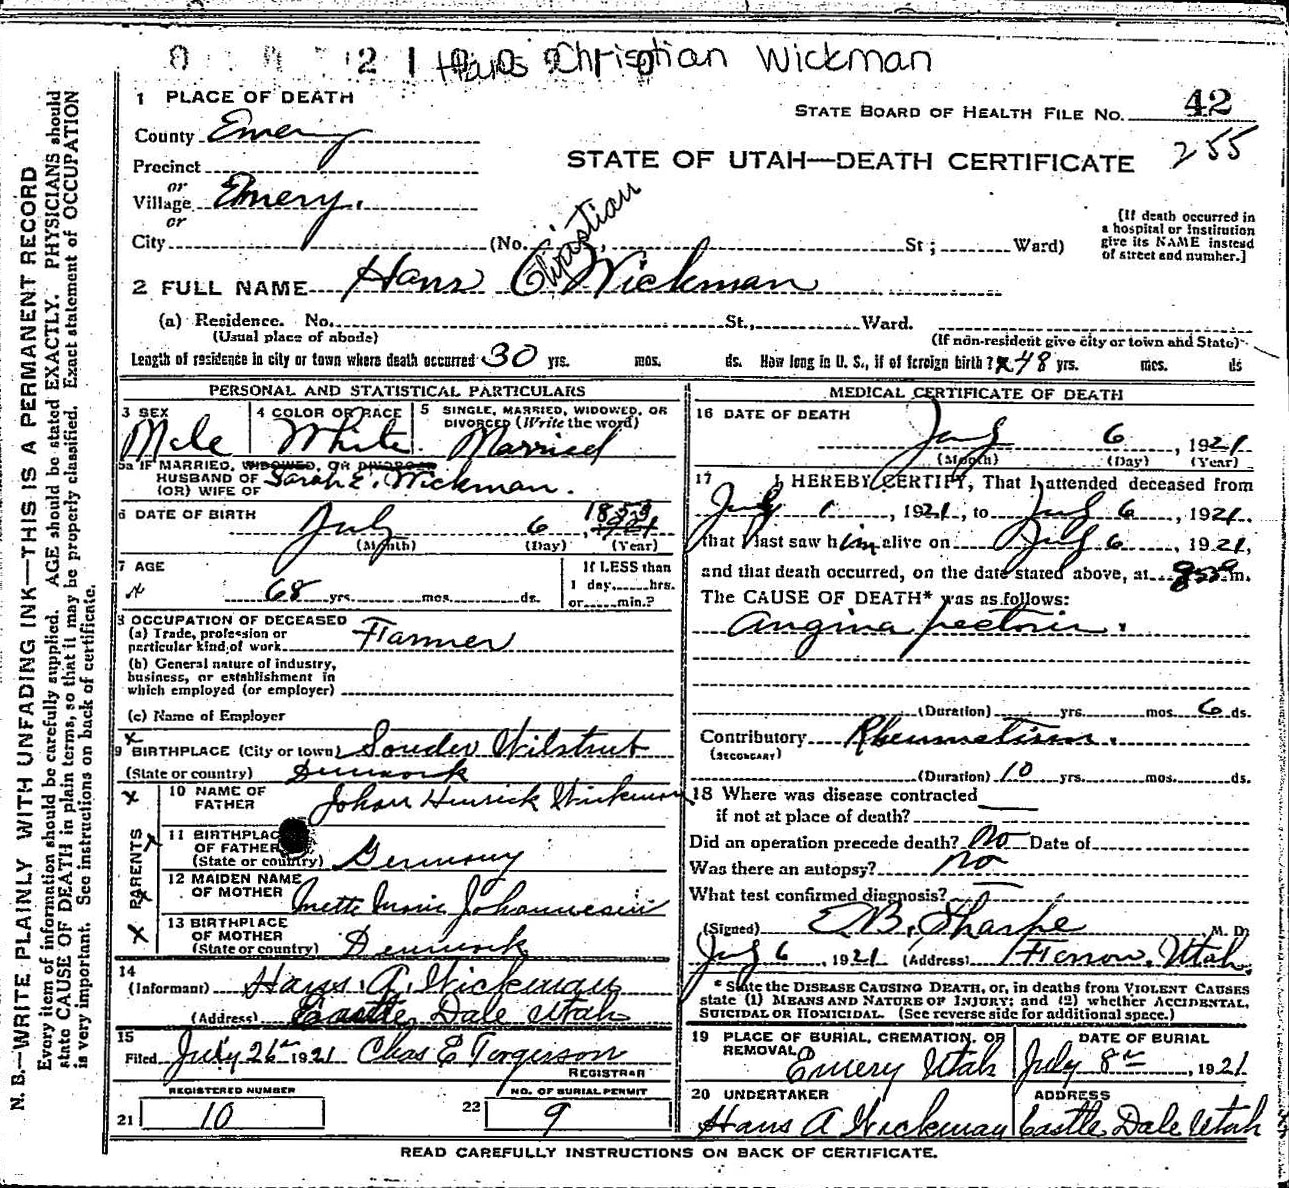 Hans Christian Wickman
1 PLACE OF DEATH
STATE BOARD OF HEALTH FILE NO. 42
255
County Emery
STATE OF UTAH—DEATH CERTIFICATE
Precinct
or
Village Emery.
or
City (No. , St; Ward)
[If death occurred in a hospital or institution give its NAME instead of street and number.]
Christian
2 FULL NAME Hans C Wickman
(a) Residence. No. St., Ward.
(Usual place of abode) (If non-resident give city or town and State)
Length of residence in city or town where death occurred 30 yrs. mos. ds. How long in U. S., if of foreign birth? 48 yrs. mos. ds
PERSONAL AND STATISTICAL PARTICULARS
3 SEX Male
4 COLOR OR RACE White.
5 SINGLE, MARRIED, WIDOWED, OR DIVORCED (Write the word) Married
5a IF MARRIED, WIDOWED, OR DIVORCED
HUSBAND OF Sarah E. Wickman.
(OR) WIFE OF
6 DATE OF BIRTH July 6 1853
(Month) (Day) (Year)
7 AGE
x 68 yrs. mos. ds.
If LESS than
1 day, hrs.
or min.?
8 OCCUPATION OF DECEASED
(a) Trade, profession or particular kind of work Farmer
(b) General nature of industry,
business, or establishment in
which employed (or employer)
(c) Name of Employer
9 BIRTHPLACE (City or town) Sonder Wilstrut
(State or country) Denmark
PARENTS
10 NAME OF FATHER Johan Henrick Wickman
11 BIRTHPLACE OF FATHER (State or country) Germany
12 MAIDEN NAME OF MOTHER Anette Marie Johannesin
13 BIRTHPLACE OF MOTHER (State or country) Denmark
14
(Informant) Hans. A. Wickman
(Address) Castle Dale Utah
15
Filed July 26th 1921 Chas E Torgerson
REGISTRAR
REGISTERED NUMBER
21 10
NO. OF BURIAL PERMIT
22 9
MEDICAL CERTIFICATE OF DEATH
16 DATE OF DEATH
July 6, 1921
(Month) (Day) (Year)
17 I HEREBY CERTIFY, That I attended deceased from
July 1, 1921, to July 6, 1921.
that I last saw him alive on July 6, 1921,
and that death occurred, on the date stated above, at m.
The CAUSE OF DEATH* was as follows:
Angina pectoris.
(Duration) yrs. mos. 6 ds.
Contributory Rheumatism.
(SECONDARY)
(Duration) 10 yrs. mos. ds.
18 Where was disease contracted
if not at place of death?
Did an operation precede death? No Date of
Was there an autopsy? No
What test confirmed diagnosis?
(Signed) E.B. Sharpe M. D.
July 6, 1921 (Address) Ferron, Utah.
* State the DISEASE CAUSING DEATH, or, in deaths from VIOLENT CAUSES
state (1) MEANS AND NATURE OF INJURY; and (2) whether ACCIDENTAL,
SUICIDAL OR HOMICIDAL. (See reverse side for additional space.)
19 PLACE OF BURIAL, CREMATION, OR REMOVAL
Emery Utah
DATE OF BURIAL
July 8th, 1921
20 UNDERTAKER
Hans A Wickman
ADDRESS
Castle Dale Utah
READ CAREFULLY INSTRUCTIONS ON BACK OF CERTIFICATE.
N. B.—WRITE PLAINLY WITH UNFADING INK—THIS IS A PERMANENT RECORD
Every item of information should be carefully supplied. AGE should be stated EXACTLY. PHYSICIANS should
state CAUSE OF DEATH in plain terms, so that it may be properly classified. Exact statement of OCCUPATION
is very important. See instructions on back of certificate.